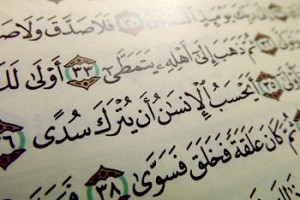 فَلَا صَدَّقَ وَلَا
ثُمَّ ذَهَبَ إِلَىٰٓ أَهْلِهِۦ يَتَمَطَّىٰٓ ٣٣ أَوْلَىٰ
أَيَحْسَبُ ٱلْإِنسَٰنُ أَن يُتْرَكَ سُدًى
ثُمَّ كَانَ عَلَقَةً فَخَلَقَ فَسَوَّىٰ ٣٨